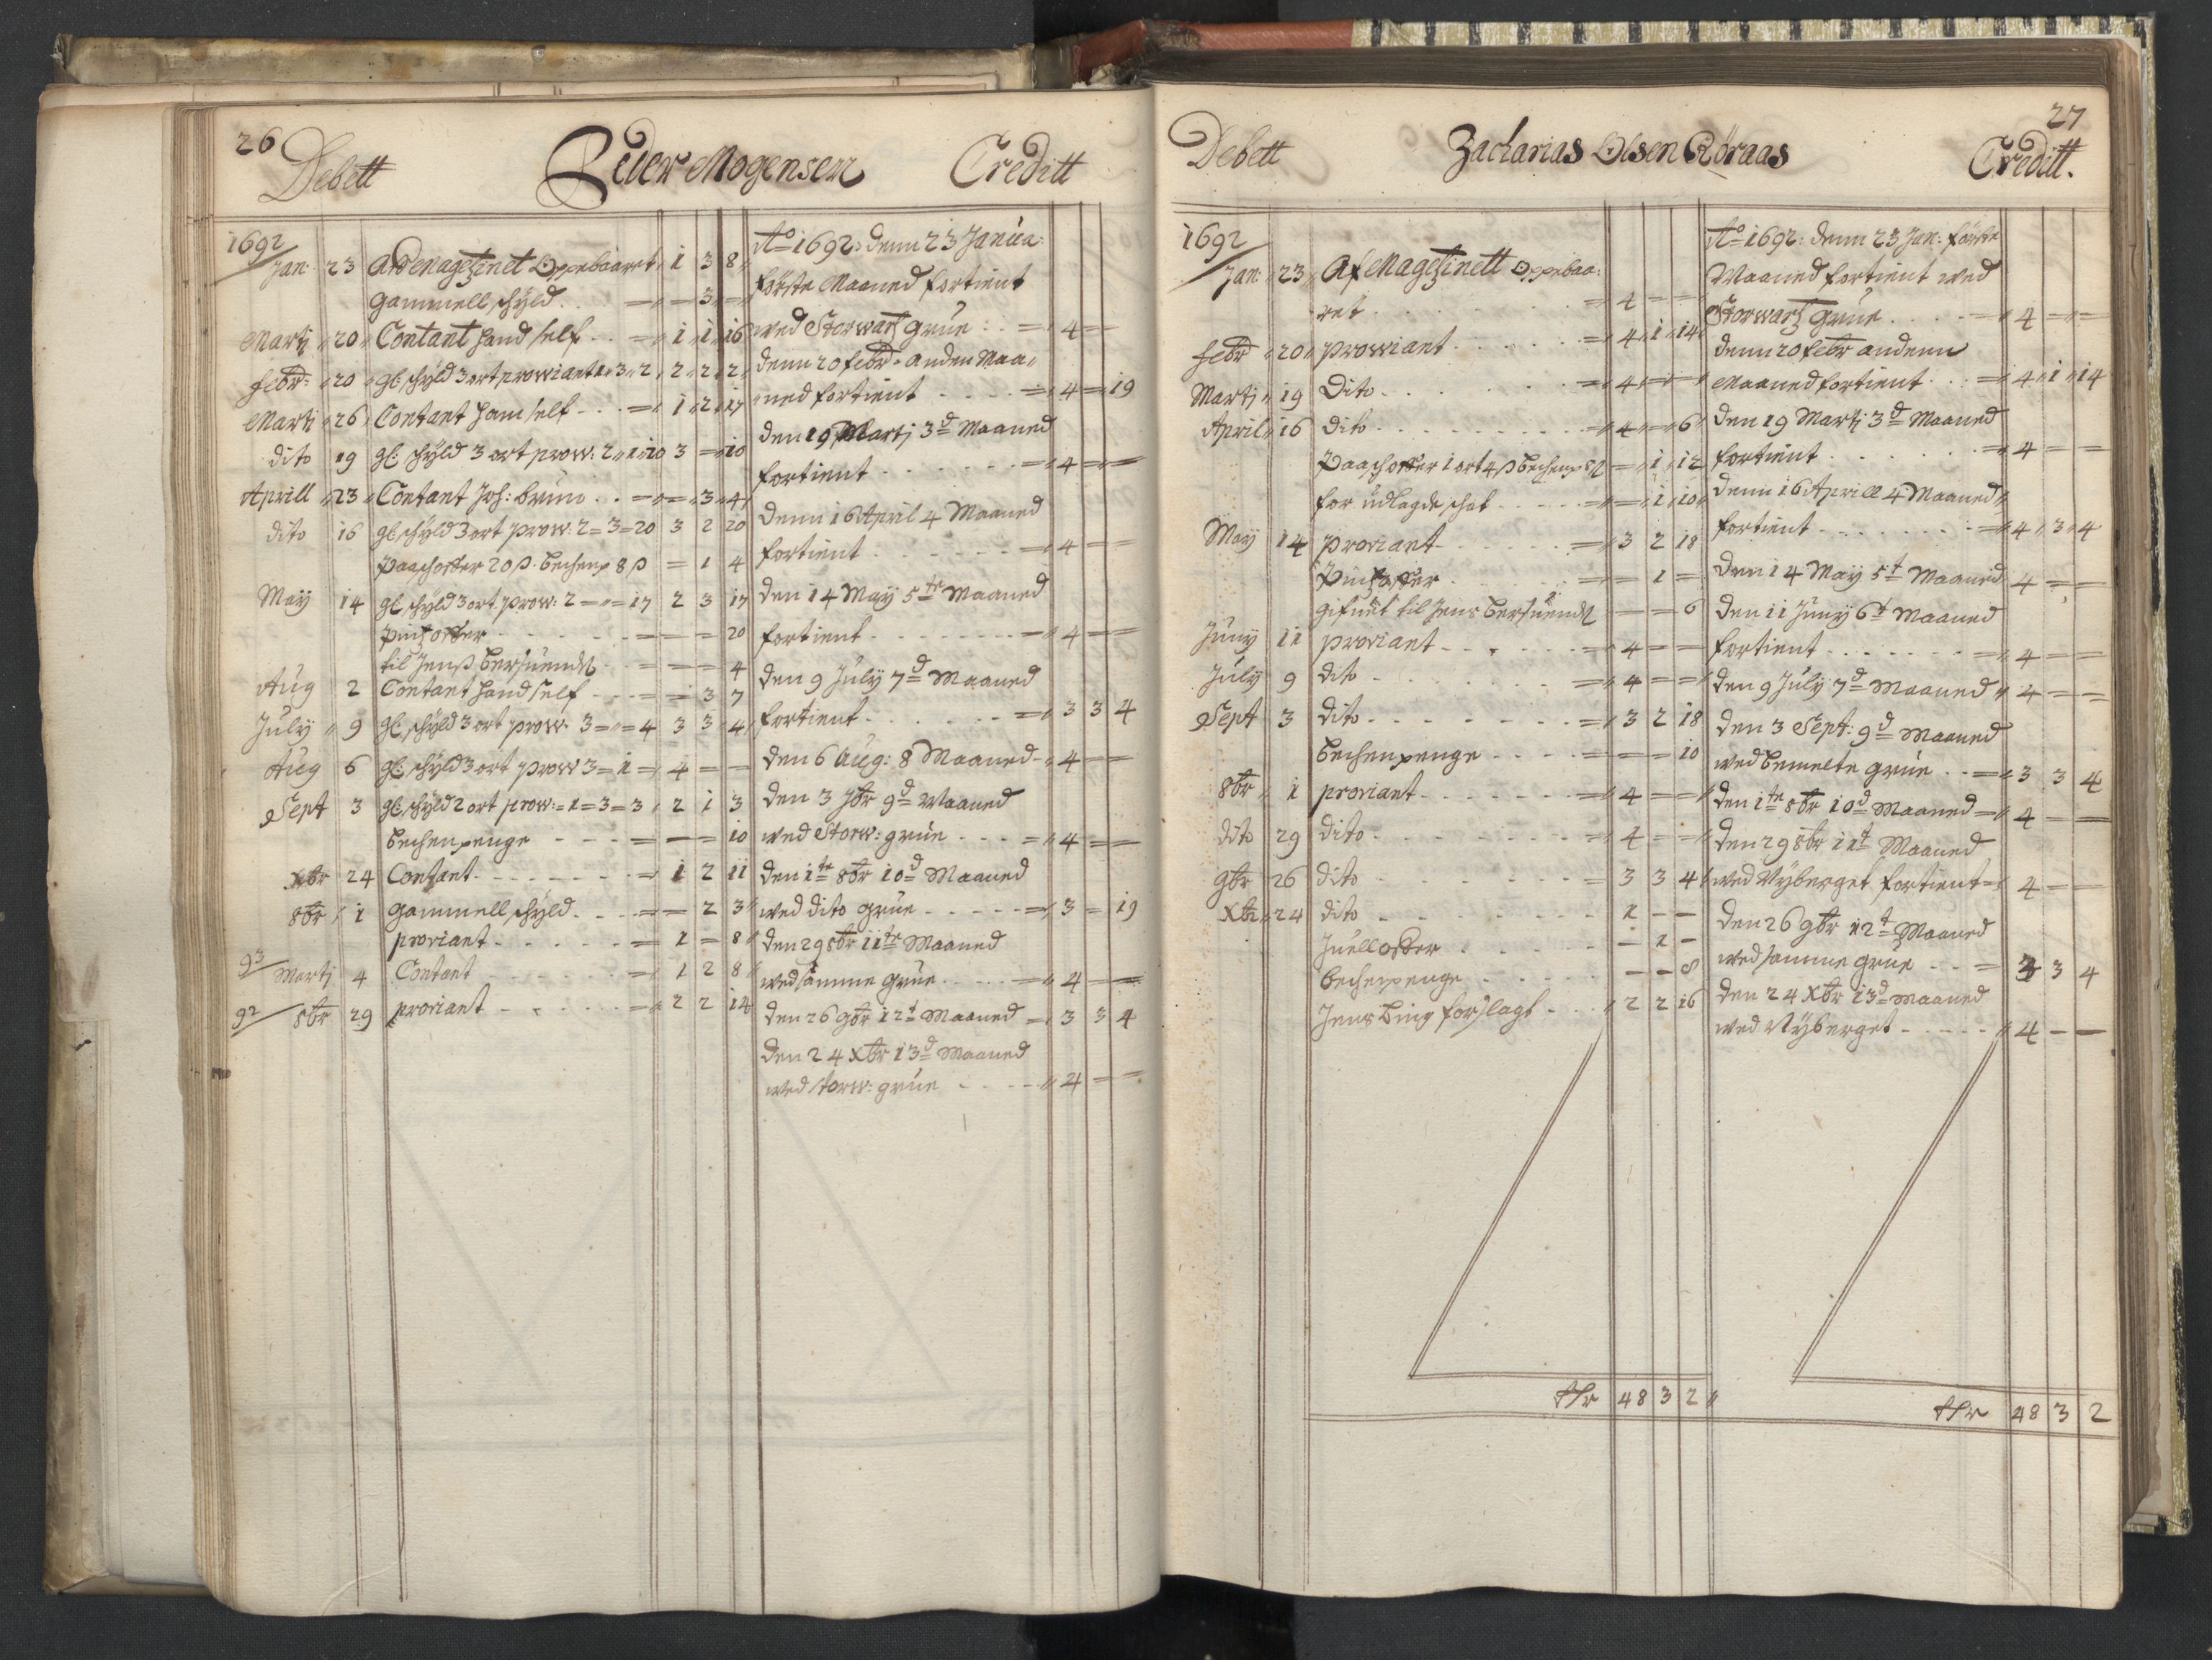 26
Debett Peder Mogensen Creditt
1692
Jan: 23 Af Magezinet Oppebaaret 1 3 8
gammell schyld . = 3 =
Martj 20 Contant hand self . . = 1 1 16
Febr: 20 gl: schyld 3 ort prowiant 1 3 2 2 2 2
Martj 26 Contant ham self - - = 1 2 17
dito 19 gl: schyld 3 ort prow: 2 1 10 3 = 10
Aprill 23 Contant Joh: Bruun . . = = 3 4
dito 16 gl schyld 3 ort prow: 2 = 3 = 20 3 2 20
Paaschoffer 20 β. bechenp 8 β = 1 4
May 14 gl schyld 3 ort prow: 2 = = 17 2 3 17
pintzoffer - - - = = 20
til Jenβ Bersuend - - = = 4
Aug 2 Contant hand self - - = = 3 7
July 9 gl: schyld 3 ort prow 3 = = 4 3 3 4
Aug 6 gl: schyld 3 ort prow 3 = 1 = 4 = =
Sept 3 gl: schyld 2 ort prow: = 1 = 3 = 3 2 1 3
bechenpenge - - - = = = 10
Xbr 24 Contant - - - - = 1 2 11
8br 1 gammell schyld - - = = 2 3
proviant - - - - = 1 = 8
93 Martj 4 Contant - - - - = 1 2 8
92 8br 29 proviant - - - - = 2 2 14
Ao 1692: denn 23 Janua:
første Maaned fortient
wed Storwartz grue : . = 4 =
denn 20 Febr: anden Maa
ned fortient - - - = 4 = 19
den 19 Martj 3d Maaned
fortient - - - - = 4 = =
denn 16 April 4 Maaned
fortient - - - - = 4 = =
den 14 May 5te Maaned
fortient - - - - = 4 = =
den 9 July 7d Maaned
fortient - - - - = 3 3 4
den 6 Aug: 8 Maaned - 4 = =
den 3 7br 9d Maaned
wed Storw: grue - - - = 4 = =
den 1te 8br 10d Maaned
wed dito grue - - - - = 3 = 19
den 29 8br 11te Maaned
wed samme grue - - - = 4 = =
den 26 9br 12t Maaned = 3 3 4
den 24 Xbr 13d Maaned
wed storw: grue - - - 4 = =
27
Debett Zacharias Olsen Röraas Creditt.
1692
Jan: 23 Af Magezinett Oppebaa:
ret . . . . = 4 = =
Febr 20 prowiant . . . . = 4 1 14
Martj 19 Dito . . . . = 4 = =
April 16 dito - - - - = 4 = 6
Paaschoffer 1 ort 4 β bechenp 8 β = 1 12
for udlagde schat - - - = = 1 10
May 14 proviant - - - = 3 2 18
Pintzoffer - - - = = 1 =
gifuet til Jens Bersuend = = 6
Juny 11 proviant - - - - = 4 = =
July 9 dito - - - - = 4 = =
Sept 3 dito - - - - = 3 2 18
bechenpenge - - - = = = 10
8br 1 proviant - - - - = 4 = =
dito 29 dito - - - - = 4 = =
9br 26 dito - - - - = 3 3 4
Xbr 24 dito - - - - 1 - -
Juelloffer - - - - 1 -
bechenpenge - - - - - 8
Jens Bing forslagt - - 2 2 16
Ao 1692: denn 23 Jan: første
Maaned fortient wed
Storwartz grue . . . . = 4 = =
denn 20 Febr andenn
Maaned fortient . . = 4 1 14
den 19 Martj 3d Maaned
fortient . . . . = 4 = =
denn 16 Aprill 4 Maaned
fortient - - - - = 4 3 4
den 14 May 5t Maaned 4 = =
den 11 Juny 6t Maaned
fortient - - - - = 4 = =
den 9 July 7d Maaned 4 = =
den 3 Sept: 9d Maaned
wed bemelte grue - - = 3 3 4
den 1te 8br 10d Maaned = 4 = =
den 29 8br 11t Maaned
wed Nyberget fortient = 4 = =
den 26 9br 12t Maaned
wed samme grue - - = 3 3 4
den 24 Xbr 13d Maaned
wed Nyberget - - - - 4 - -
48 3 2
48 3 2